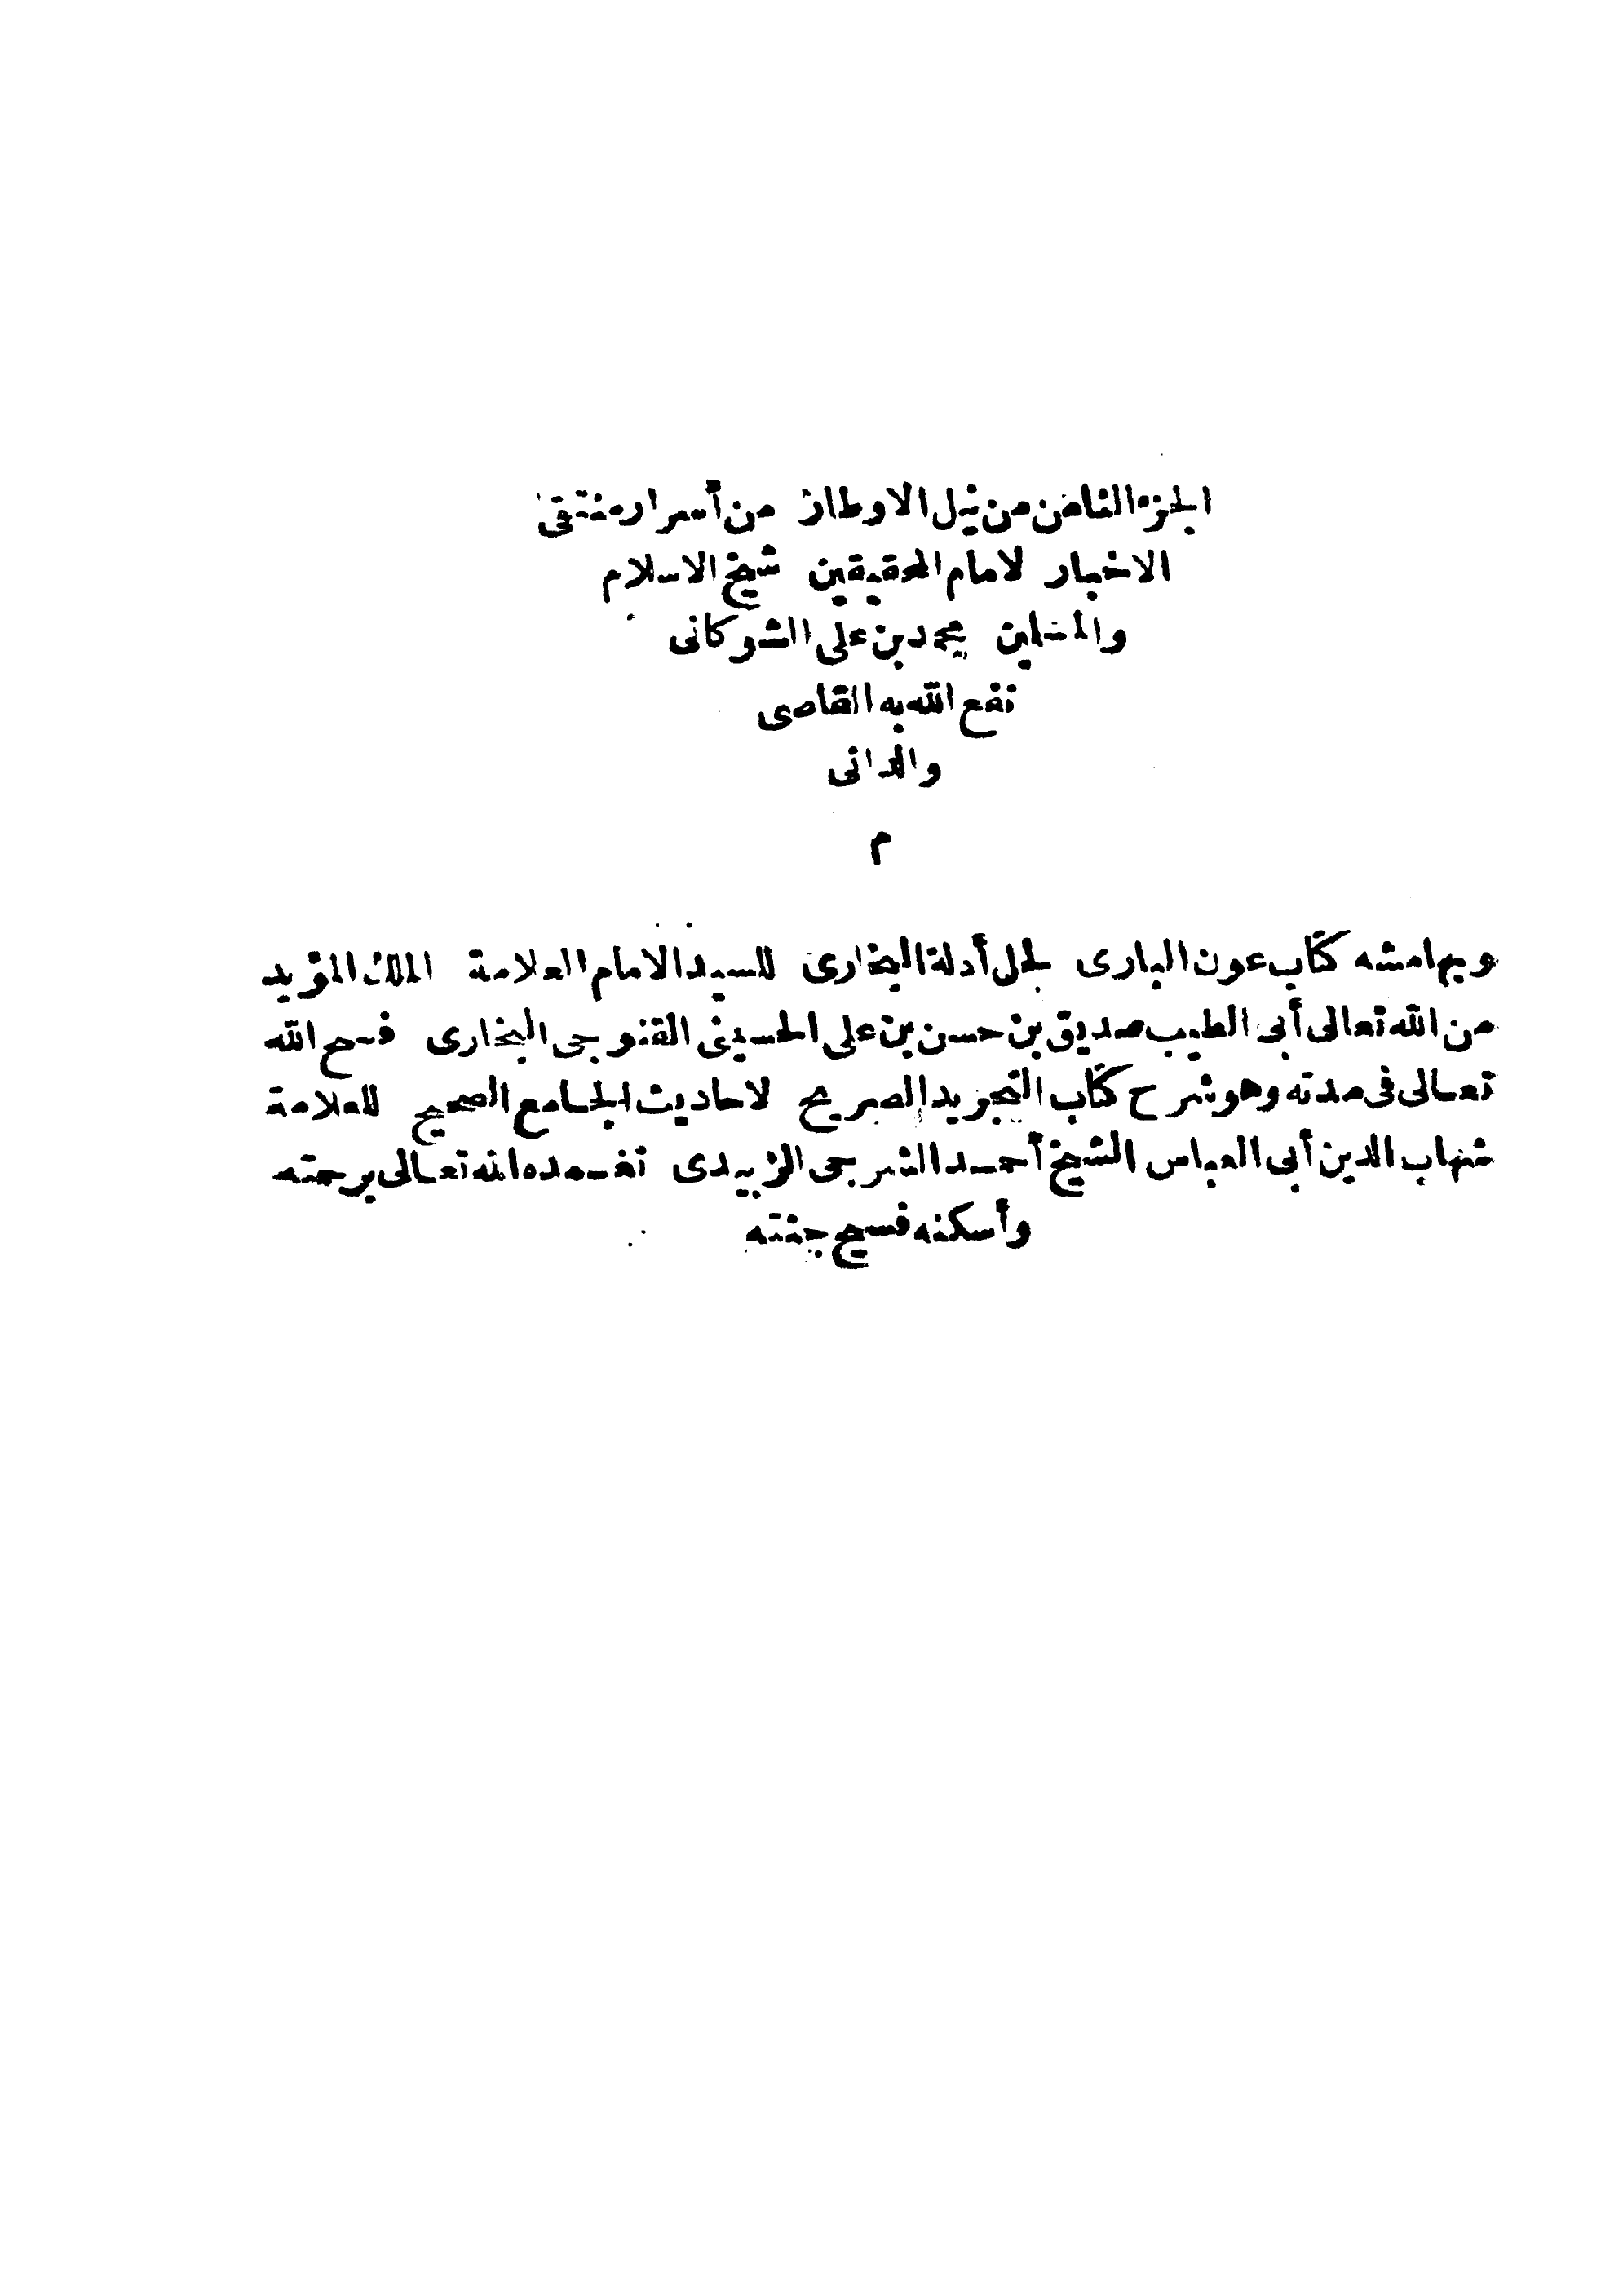 الجزء الثامن من نيل الاوطار من أسرار منتقى
الاخبار لامام المحققين شيخ الاسلام
والمسلمين محمد بن على الشوكانى
نفع الله به القاصى
والدانى
م
وبهامشه كتاب عون البارى لحل أدلة البخارى للسيد الامام العلامة الملك المؤيد
من الله تعالى أبى الطيب صديق بن حسن بن على الحسينى القنوجى البخارى فسح الله
تعالى فى مدته وهو شرح كتاب التجريد الصريح لاحاديث الجامع الصحيح للعلامة
شهاب الدين أبى العباس الشيخ أحمد الشرجى الزبيدى تغمده الله تعالى برحمته
وأسكنه فسيح جنته